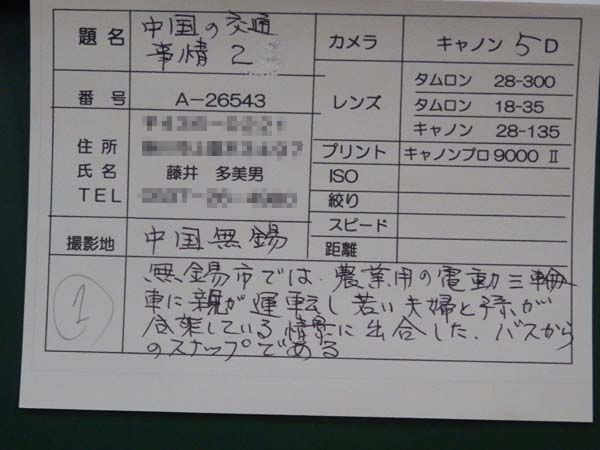 題名 中国の交通
事情 2
番号 A-26543
住所
氏名 藤井 多美男
TEL
撮影地 中国無錫
カメラ キャノン 5D
レンズ タムロン 28-300
タムロン 18-35
キャノン 28-135
プリント キャノンプロ9000 Ⅱ
ISO
絞り
スピード
距離
①
無錫市では、農業用の電動三輪
車に親が運転し若い夫婦と子孫が
している情景に出合した、バスから
のスナップである